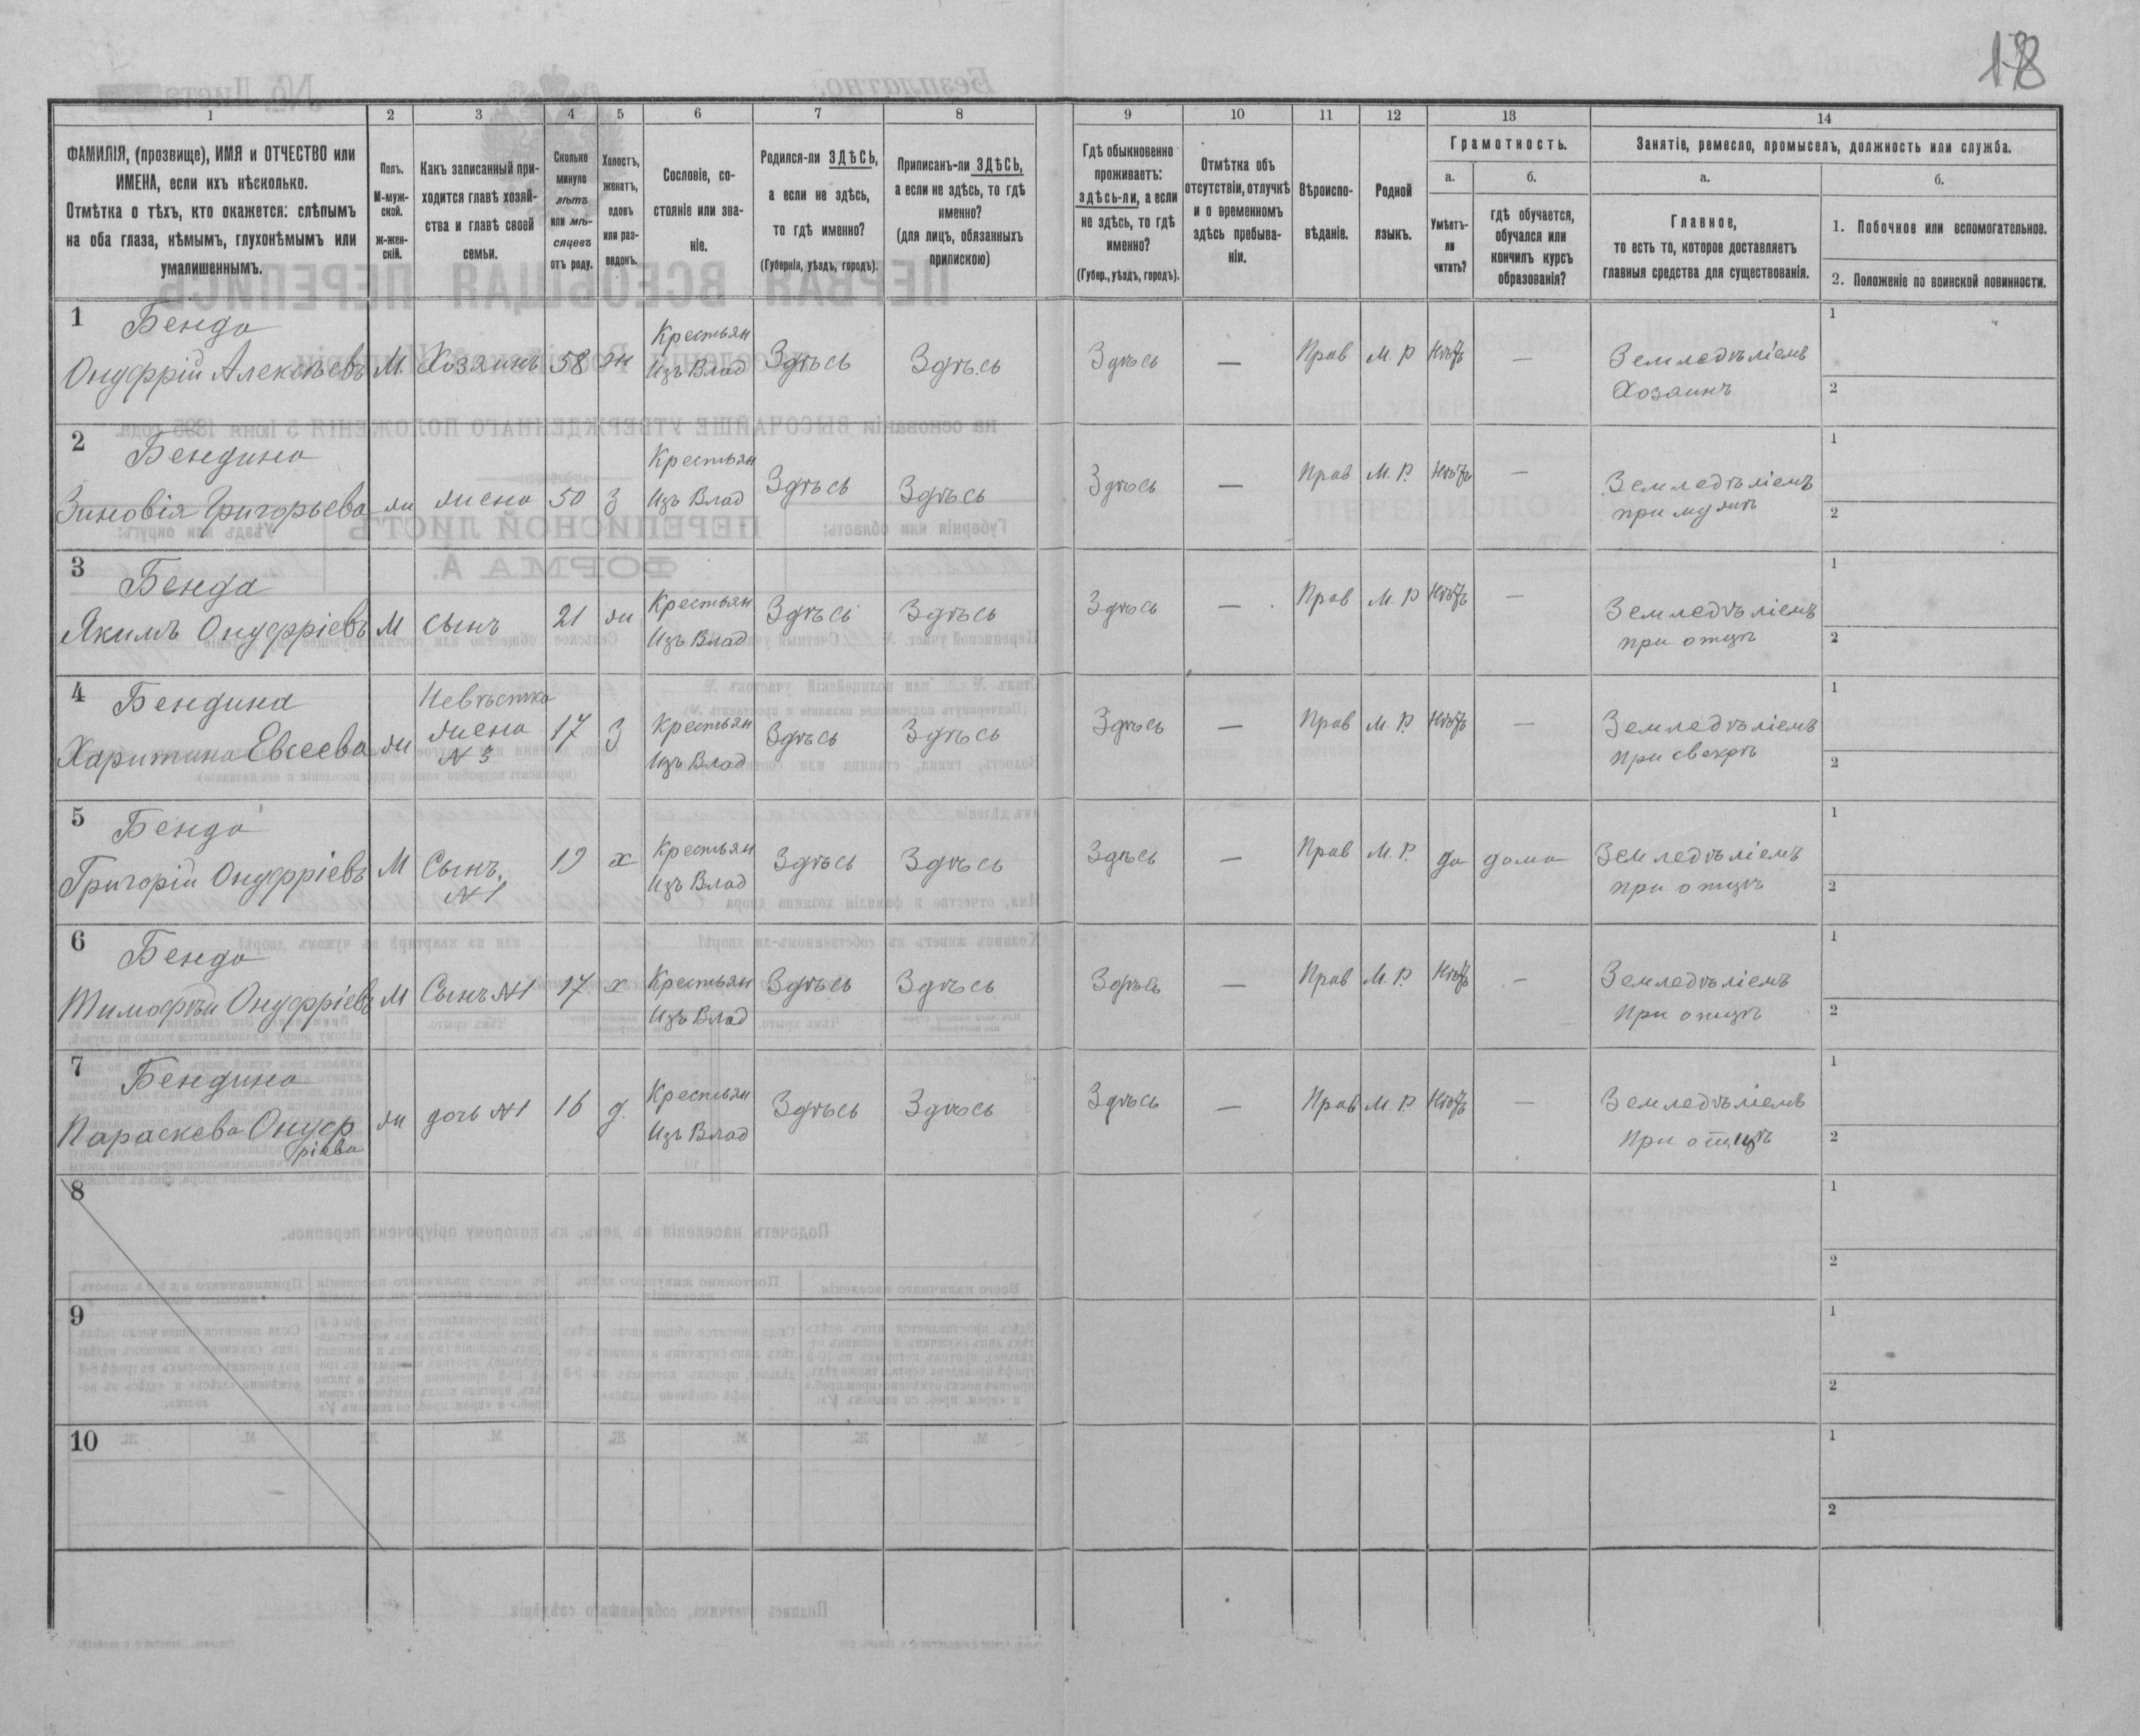 18
1 2 3 4 5 6 7 8 9 10 11 12 13 14
ФАМИЛІЯ, (прозвище), ИМЯ и ОТЧЕСТВО или
ИМЕНА, если ихъ нѣсколько.
Отмѣтка о тѣхъ, кто окажется: слѣпымъ
на оба глаза, нѣмымъ, глухонѣмымъ или
умалишеннымъ.
Полъ.
М-муж-
ской.
ж-жен-
скій.
Какъ записанный при-
ходится главѣ хозяй-
ства и главѣ своей
семьи.
Сколько
минуло
лѣтъ
или мѣ-
сяцевъ
отъ роду.
Холостъ,
женатъ,
вдовъ
или раз-
веденъ.
Сословіе, со-
стояніе или зва-
ніе.
Родился-ли ЗДѢСЬ,
а если не здѣсь,
то гдѣ именно?
(Губернія, уѣздъ, городъ).
Приписанъ-ли ЗДѢСЬ,
а если не здѣсь, то гдѣ
именно?
(для лицъ, обязанныхъ
припискою)
Гдѣ обыкновенно
проживаетъ:
здѣсь-ли, а если
не здѣсь, то гдѣ
именно?
(Губер., уѣздъ, городъ).
Отмѣтка объ
отсутствіи, отлучкѣ
и о временномъ
здѣсь пребыва-
ніи.
Вѣроиспо-
вѣданіе.
Родной
языкъ.
Грамотность.
а.
Умѣетъ-
ли
читать?
б.
гдѣ обучается,
обучался или
кончилъ курсъ
образованія?
Занятіе, ремесло, промыселъ, должность или служба.
а.
Главное,
то есть то, которое доставляетъ
главныя средства для существованія.
б.
1. Побочное или вспомогательное.
2. Положеніе по воинской повинности.
1 Бенда Крестьян 1
Онуфрій Алексѣевъ М. Хозяинъ 58 ж Изъ Влад Здѣсь Здѣсь Здѣсь — Прав М. Р Нѣтъ — Земледѣліемъ
Хозяинъ 2
2 Бендина Крестьян 1
Зиновія Григорьева ж жена 50 З Изъ Влад Здѣсь Здѣсь Здѣсь — Прав М. Р. Нѣтъ — Земледѣліемъ
при мужѣ 2
3 Бенда Крестьян 1
Якимъ Онуфріевъ М сынъ 21 ж Изъ Влад Здѣсь Здѣсь Здѣсь — Прав М. Р Нѣтъ — Земледѣліемъ
при отцѣ 2
4 Бендина Невѣстка Крестьян 1
Харитина Евсеева ж жена 17 З Изъ Влад Здѣсь Здѣсь Здѣсь — Прав М. Р. Нѣтъ — Земледѣліемъ
N 3 При свекрѣ 2
5 Бенда Крестьян 1
Григорій Онуфріевъ М Сынъ. 19 х Изъ Влад Здѣсь Здѣсь Здѣсь — Прав М. Р. да дома Земледѣліемъ
N 1 при отцѣ 2
6 Бенда Крестьян 1
Тимофѣй Онуфріевъ М Сынъ N1 17 х Изъ Влад Здѣсь Здѣсь Здѣсь — Прав М. Р. Нѣтъ — Земледѣліемъ
При отцѣ 2
7 Бендина Крестьян 1
Параскева Онуф ж дочь N1 16 д. Изъ Влад Здѣсь Здѣсь Здѣсь — Прав М. Р. Нѣтъ — Земледѣліемъ
ріева При отцѣ 2
8 1
2
9 1
2
10 1
2